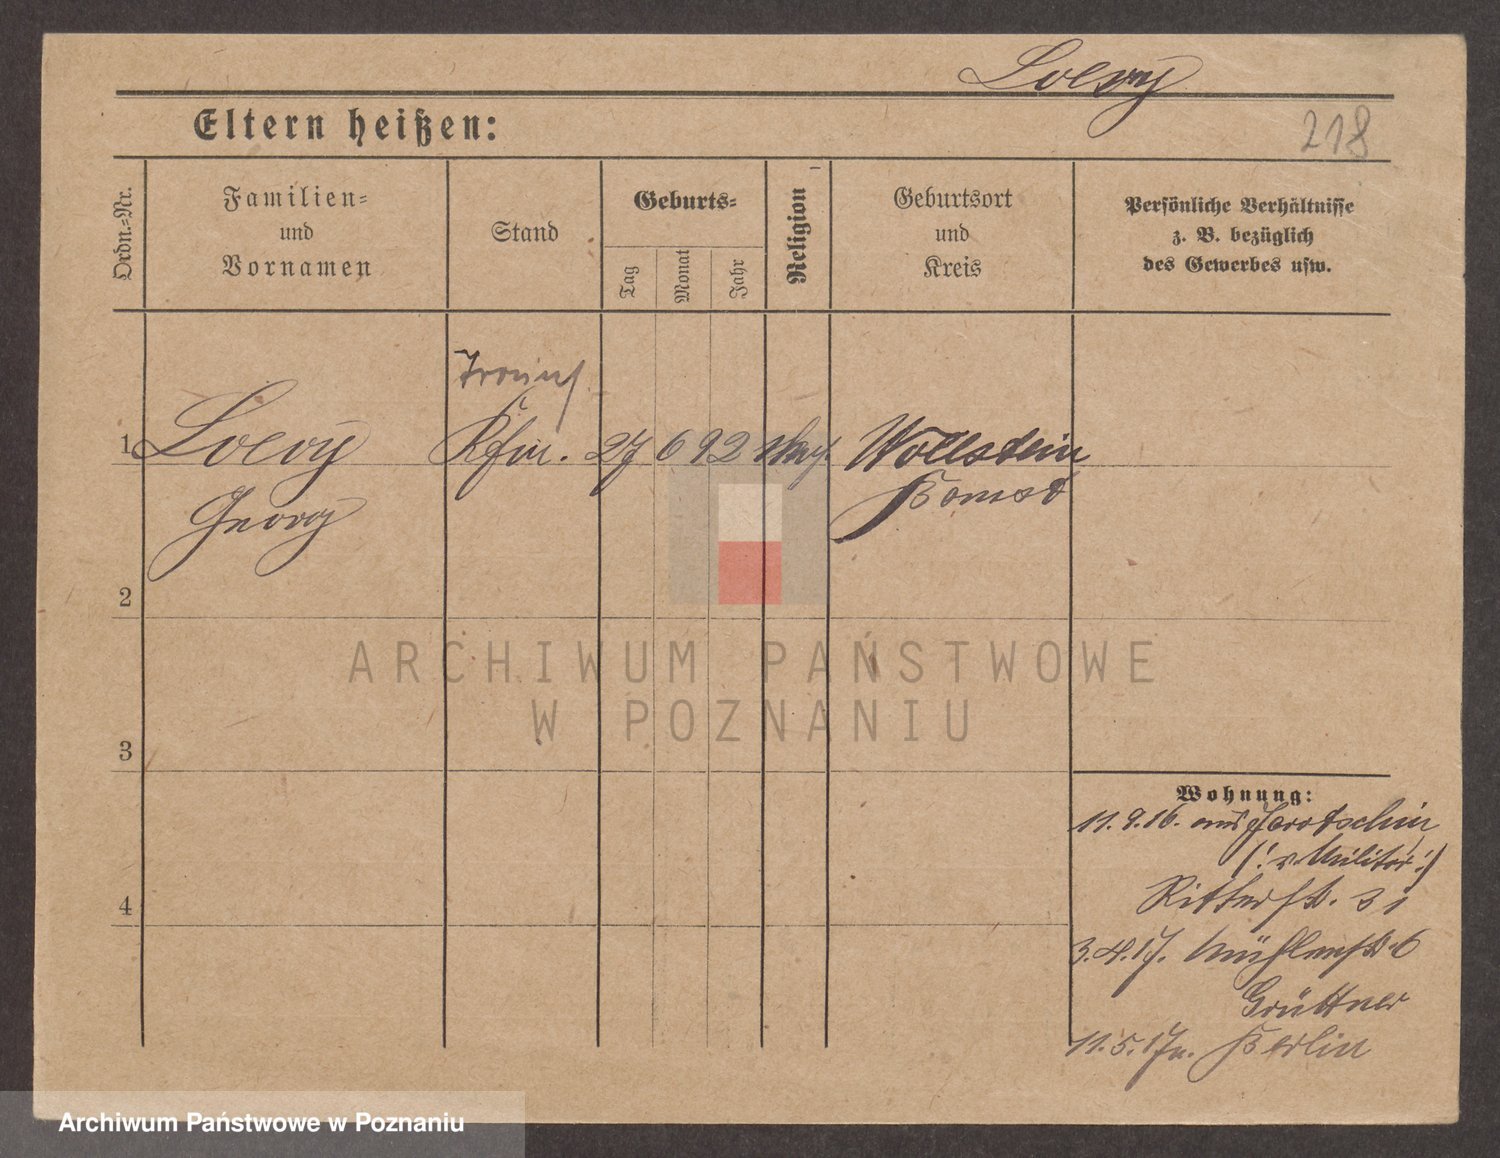 Loevy
Eltern heißen:
218
Ordn.-Nr.
Familien-
und
Vornamen
Stand
Geburts-
Tag
Monat
Jahr
Religion
Geburtsort
und
Kreis
Persönliche Verhältnisse
z. B. bezüglich
des Gewerbes usw.
1
Loevy
Georg
Kfm.
27 6 92
Wollstein
Bomst
2
3
4
Wohnung:
11.9.16. aus Jarotschin
(: v. Militär :)
Ritterstr. 31
3.4.17. Mühlenstr. 6
Grüttner
11.5.17 n. Berlin
ARCHIWUM PAŃSTWOWE
W POZNANIU
Archiwum Państwowe w Poznaniu